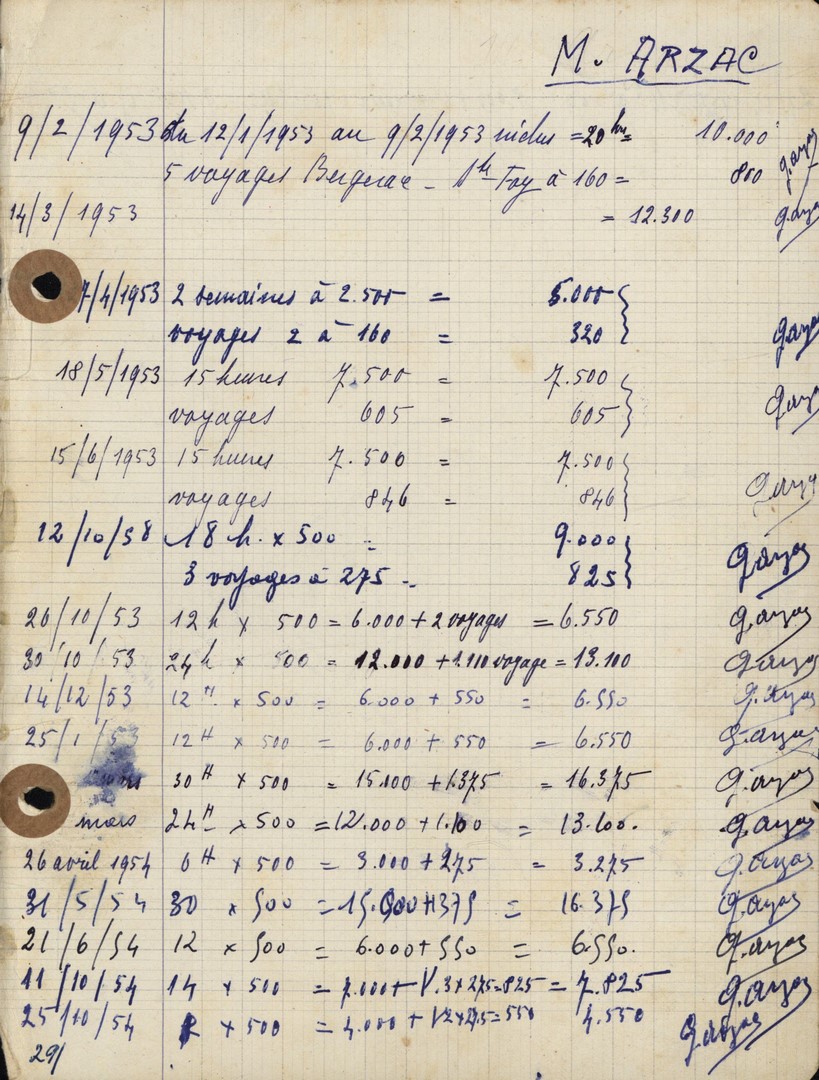 M. ARZAC
9/2/1953 du 12/1/1953 au 9/2/1953 inclus = 20 hres = 10.000
5 voyages Bergerac - Ste Foy à 160 = 800 g.arzac
14/3/1953 = 12.300 g.arzac
7/4/1953 2 semaines à 2.500 = 5.000
voyages 2 à 160 = 320 g.arzac
18/5/1953 15 heures 7.500 = 7.500
voyages 605 = 605 g.arzac
15/6/1953 15 heures 7.500 = 7.500
voyages 846 = 846 g.arzac
12/10/58 18 h. x 500 = 9.000
3 voyages à 275 = 825 g.arzac
26/10/53 12 h x 500 = 6.000 + 2 voyages = 6.550 g.arzac
30/10/53 24 h x 500 = 12.000 + 1.100 voyage = 13.100 g.arzac
14/12/53 12 H x 500 = 6.000 + 550 = 6.550 g.arzac
25/1/53 12 H x 500 = 6.000 + 550 = 6.550 g.arzac
30 H x 500 = 15.000 + 1.375 = 16.375 g.arzac
mars 24 H x 500 = 12.000 + 1.100 = 13.100. g.arzac
26 avril 1954 6 H x 500 = 3.000 + 275 = 3.275 g.arzac
31/5/54 30 x 500 = 15.000 + 1375 = 16.375 g.arzac
21/6/54 12 x 500 = 6.000 + 550 = 6.550. g.arzac
11/10/54 14 x 500 = 7.000 + V. 3 x 275 = 825 = 7.825 g.arzac
25/10/54 x 500 = 4.000 + V 2 x 275 = 550 4.550 g.arzac
29/